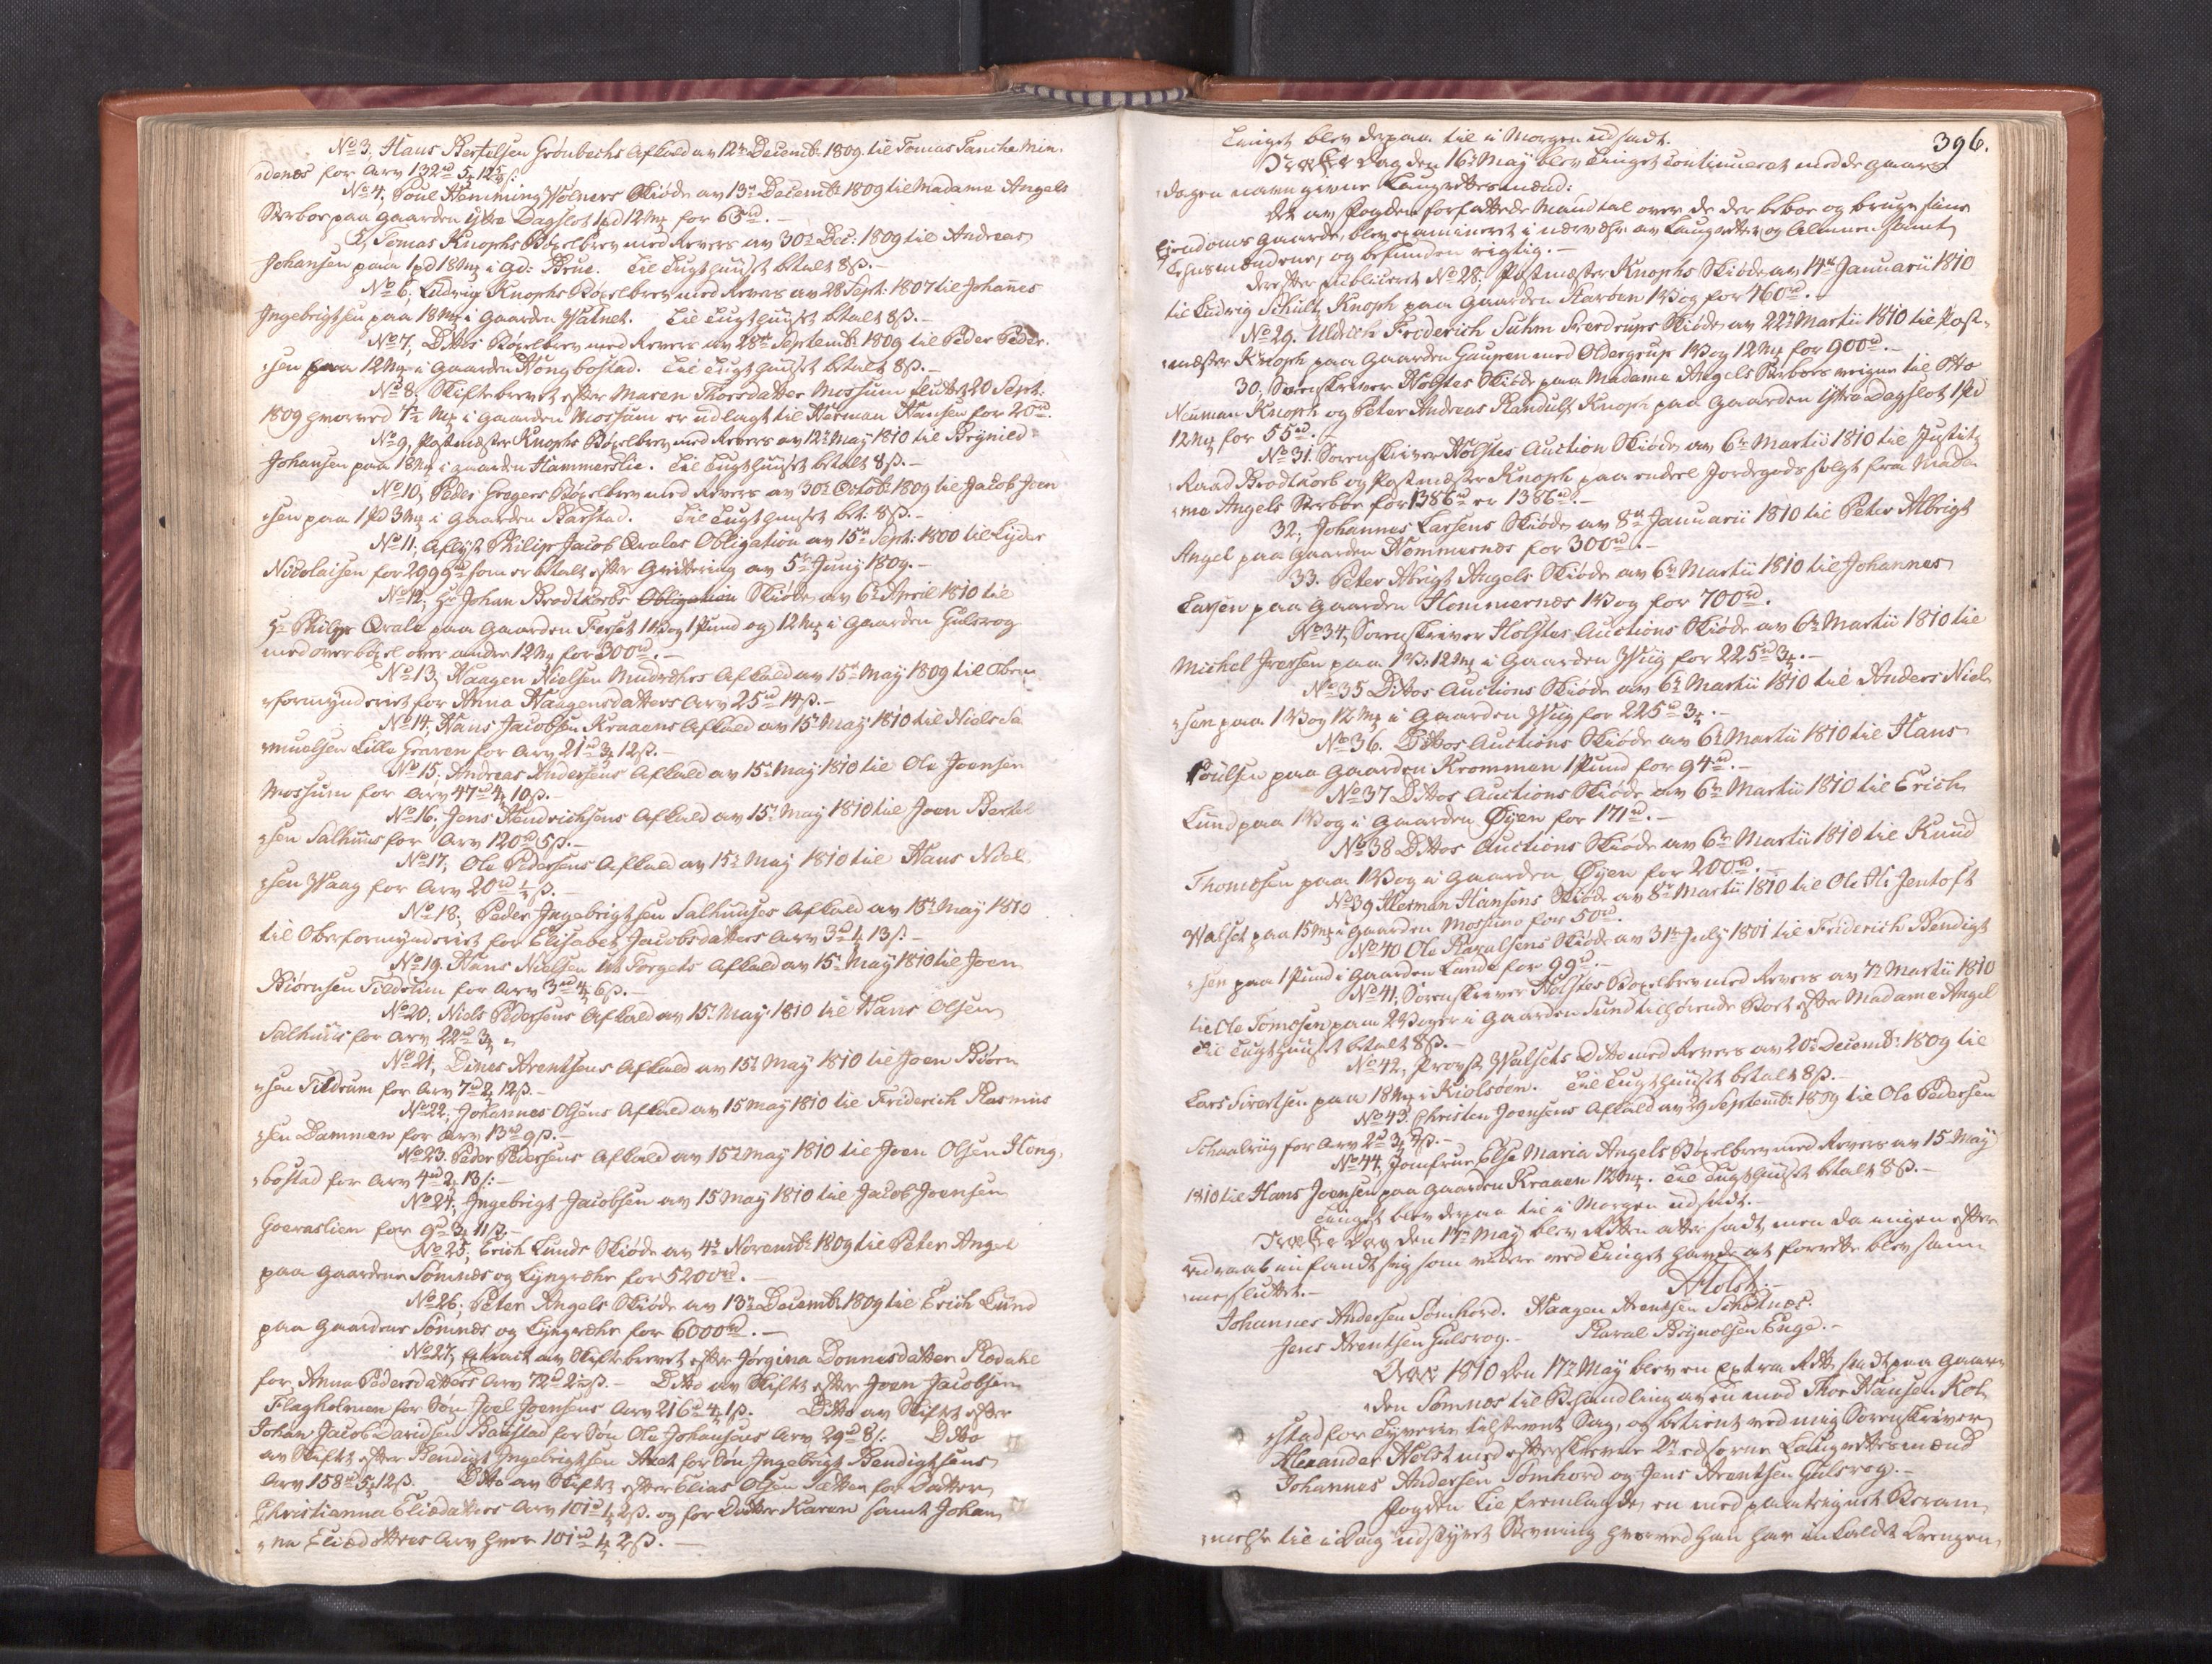 No 3, Hans Bertelsen Grönbechs Afkald av 12te Decemb: 1809 til Tomas Tanche Min-
denæs for Arv 132rd 5
No 4, Poul Hemming Wolners Skiöde av 13de Decemb: 1809 til Madame Angels
Sterboe paa Gaarden Yttre Dagslot 1pd 12mk for 65rd.-
5, Tomas Knophs Böxelbrev med Revers av 30te Dec: 1809 til Andreas
Johansen paa 1pd 18mk i Gd: Brue. Til Tugthuuset betalt 8ß.-
No 6, Ludvig Knophs Böxelbrev med Revers av 28 Sept: 1807 til Johannes
Ingebrigtsen paa 18mk i Gaarden Watnet. Til Tugthuuset betalt 8ß.-
No 7, Dittos Böxelbrev med Revers av 28de Septemb: 1809 til Peder Peder-
sen paa 12mk i Gaarden Hongbostad. Til Tugthuuset betalt 8ß.-
No 8, Skiftebrevet efter Maren Thoersdatter Mossum sluttet 20 Sept:
1809 hvorved mk i Gaarden Mossum er udlagt til Herman Hansen for 20rd.
No 9, Postmester Knophs Böxelbrev med Revers av 12te May 1810 til Brynild
Johansen paa 18mk i Gaarden Hammerslie. Til Tugthuuset betalt 8ß.-
No 10, Peder Gregers Böxelbrev med Revers av 30te Octob: 1809 til Jacob Joen-
sen paa 1pd 3mk i Gaarden Barstad. Til Tugthuuset bet: 8ß.-
No 11, Aflyst Philip Jacob Qvales Obligation av 15de Sept: 1800 til Lyder
Nicolaisen for 2999rd som er betalt efter Qvittering av 5te Juny 1809.-
No 12, Hr Johan Brodtkorbs Obligation Skiöde av 6te April 1810 til
Hr Philip Qvale paa Gaarden Ferset 1 Wog 1 Pund og 12mk i Gaarden Gulsvog
med overböxel over andre 12mk for 300rd.-
No 13, Haagen Nielsen Mudvehrs Afkald av 15de May 1809 til Ober-
formynderiet for Anna Haagensdatters Arv 25rd 14ß.-
No 14, Hans Jacobsen Kraaens Afkald av 15de May 1810 til Niels Sa-
muelsen Lille Graven for Arv 21rd 3 12ß.-
No 15. Andreas Andersens Afkald av 15de May 1810 til Ole Joensen
Mossum for Arv 47rd 4 10ß.-
No 16, Jens Hendrichsens Afkald av 15de May 1810 til Joen Bertel-
sen Salhuus for Arv 120rd 5ß.-
No 17, Ole Pedersens Afkald av 15de May 1810 til Hans Niel-
sen Waag for Arv 20rd ½ß.-
No 18, Peder Ingebrigtsen Salhuuses Afkald av 15de May 1810
til Oberformynderiet for Elisabet Jacobsdatters Arv 3rd 4 13ß.-
No 19. Hans Nielsen Torgets Afkald av 15de May 1810 til Joen
Biörnsen Tildetum for Arv 3rd 4 6ß.-
No 20. Niels Pedersens Afkald av 15de May 1810 til Hans Olsen
Salhuus for Arv 22rd 3
No 21, Dines Arentsens Afkald av 15de May 1810 til Joen Biörn-
sen Tildrum for Arv 7rd 2 12ß.-
No 22, Johannes Olsens Afkald av 15 May 1810 til Friderich Rasmus-
sen Dammen for Arv 13rd 9ß.-
No 23. Peder Pedersens Afkald av 15de May 1810 til Joen Olsen Hong-
bostad for Arv 4rd 2 13ß.-
No 24, Ingebrigt Jacobsen av 15 May 1810 til Jacob Joensen
Goeraslien for 9rd 3 11ß.-
No 25, Erich Lunds Skiöde av 4de Novemb: 1809 til Peter Angel
paa Gaardene Sömnæs og Lyngvehr for 5200rd.-
No 26, Peter Angels Skiöde av 13de Decemb: 1809 til Erich Lund
paa Gaardene Sömnæs og Lyngvehr for 6000rd.-
No 27, Extract av Skiftebrevet efter Jörgina Donnesdatter Rodahl
for Anna Pedersdatters Arv 72rd ß.- Ditto av Skiftet efter Joen Jacobsen
Flagholmen for Sön Joel Joensens Arv 216rd 4 1ß. Ditto av Skiftet efter
Johan Jacob Davidsen Baustad for Sön Ole Johansens Arv 29rd 8ß. Ditto
av Skiftet efter Bendigt Ingebrigtsen for Sön Ingebrigt Bendigtsens
Arv 158rd 5 12ß. Ditto av Skiftet efter Elias Olsen Sætter for Datter
Christianna Eliædatters Arv 101rd 4 2ß. og for Datter Karen samt Johan-
na Eliædatters Arv hver 101rd 4 2ß.-
396.
Tinget blev derpaa til i Morgen udsadt.
Næste Dag den 16de May blev Tinget continueret med de Gaars-
dagen navngivne Laugrettesmænd:
Det av Fogden forfattede Mandtal over de der beboe og bruge sine
Eiendoms Gaarde, blev examineret i nærvehr av Laugrettet og Almuen samt
Lehnsmændene, og befunden rigtig.-
Derefter publiceret No 28, Postmester Knophs Skiöde av 14de Januarii 1810
til Ludvig Schult Knoph paa Gaarden Skarven 1 Wog for 460rd.-
No 29. Uldrich Friderich Suhm Sverdrups Skiöde av 22de Martii 1810 til Post-
mester Knoph paa Gaarden Gaupen med Oldergrup 1 Wog 12mk for 900rd.-
30, Sorenskriver Holstes Skiöde paa Madame Angels Sterboes veigne til Otto
Neuman Knoph og Peter Andreas Randulf Knoph paa Gaarden Yttre Dagslot 1pd
12mk for 55rd.
No 31. Sorenskriver Holstes Auction Skiöde av 6te Martii 1810 til Justitz
Raad Brodtkorb og Postmester Knoph paa endeel Jordegods solgt fra Mada-
me Angels Sterboe for 1386rd er 1386rd.-
32, Johannes Larsens Skiöde av 8de Januarii 1810 til Peter Albrigt
Angel paa Gaarden Hommernæs for 300rd.-
33. Peter Abrigt Angels Skiöde av 6te Martii 1810 til Johannes
Larsen paa Gaarden Hommernæs 1 Wog for 700rd.
No 34, Sorenskriver Holstes Auctions Skiöde av 6te Martii 1810 til
Michel Iversen paa 1 W: 12mk i Gaarden Wiig for 225rd 3.-
No 35 Dittos Auctions Skiöde av 6te Martii 1810 til Anders Niel-
sen paa 1 Wog 12mk i Gaarden Wiig for 225rd 3.-
No 36. Dittos Auctions Skiöde av 6te Martii 1810 til Hans
Poulsen paa Gaarden Krommen 1 Pund for 94rd.-
No 37 Dittos Auctions Skiöde av 6te Martii 1810 til Erich
Lund paa 1 Wog i Gaarden Öyen for 171rd.-
No 38 Dittos Auctions Skiöde av 6te Martii 1810 til Knud
Thomesen paa 1 Wog i Gaarden Öyen for 200rd.-
No 39 Herman Hansens Skiöde av 8de Martii 1810 til Ole Hr Jentoft
Walset paa 15mk i Gaarden Mossumo for 50rd.
No 40 Ole Ravalsens Skiöde av 31te July 1801 til Friderich Bendigt-
sen paa 1 Pund i Gaarden Lande for 99rd.-
No 41, Sorenskriver Holstes Böxelbrev med Revers av 7de Martii 1810
til Ole Tomesen paa 2 Woger i Gaarden Sund tilhörende Boet efter Madame Angel
Til Tugthuuset betalt 8ß.-
No 42, Provst Walsets Ditto med Revers av 20de Decemb: 1809 til
Lars Sivertsen paa 18mk i Kiolsöen. Til Tugthuuset betalt 8ß.-
No 43. Christen Joensens Afkald av 29 Septemb: 1809 til Ole Pedersen
Schaalviig for Arv 2rd 3 ß.-
No 44, Jomfrue Else Maria Angels Böxelbrev med Revers av 15 May
1810 til Hans Joensen paa Gaarden Kraaen 12mk. Til Tugthuuset betalt 8ß.-
Tinget blev derpaa til i Morgen udsadt.-
Næste Dag den 17de May blev Retten atter sadt, men da ingen efter
udraab infandt sig som videre ved Tinget havde at forrette blev samme
sluttet.-
AHolst.-
Johannes Andersen Sömhord. Haagen Arentsen Schotnæs.
Jens Arentsen Gulsvog.- Raval Brynolsen Enge.-
Anno 1810 den 17de May blev en Extra Rett sadt paa Gaar-
den Sömnæs til Behandling av en mod Thor Hansen Kol-
stad for Tyverie tilstevnt Sag, og betient ved mig Sorenskriver
Alexander Holst med efterskrevne 2de edsorne Laugrettesmænd
Johannes Andersen Sömhord og Jens Arentsen Gulsvog.-
Fogden fremlagde en med paategnet Beram-
melse til i Dag udstædt Stevning hvorved han har inkaldt Drengen